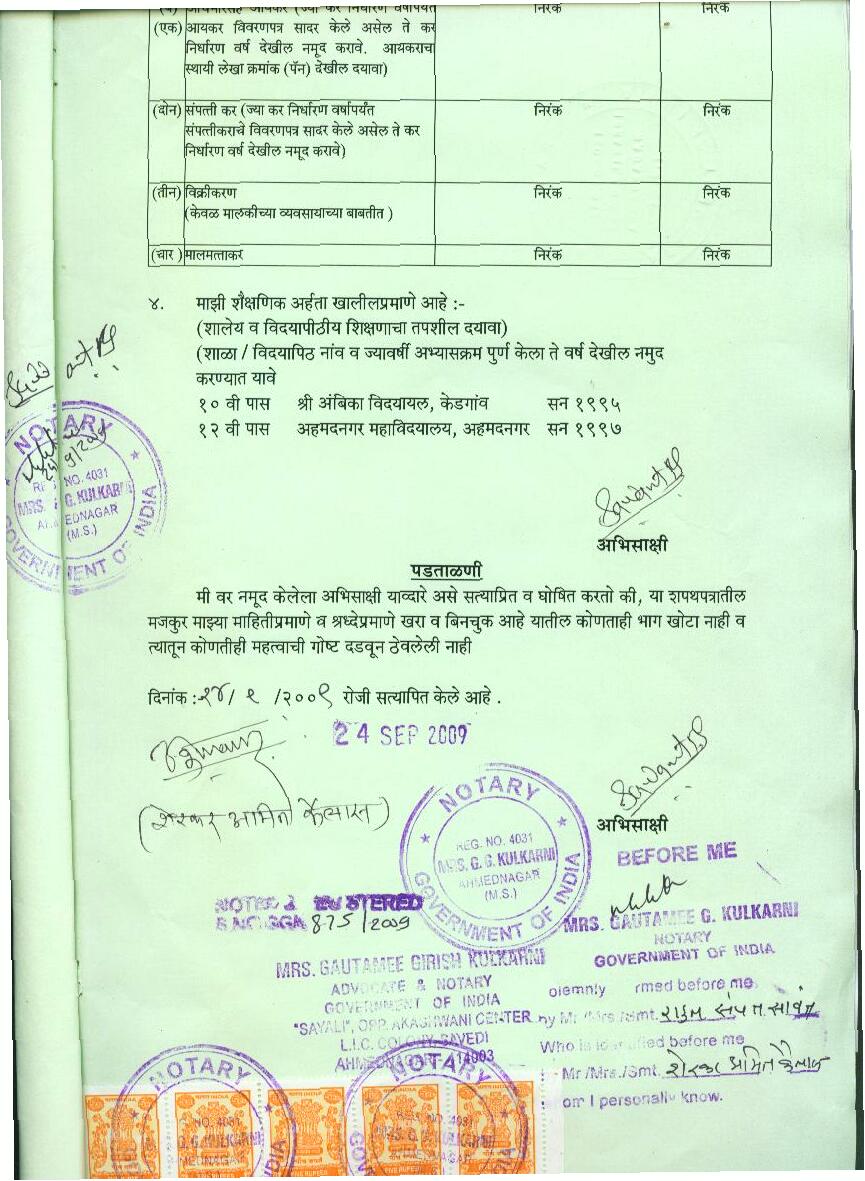 (ज्या कर निर्धारण वर्षापर्यंत निरंक निरंक
(एक) आयकर विवरणपत्र सादर केले असेल ते कर
निर्धारण वर्ष देखील नमूद करावे. आयकराचा
स्थायी लेखा क्रमांक (पॅन) देखील दयावा)
(दोन) संपत्ती कर (ज्या कर निर्धारण वर्षापर्यंत निरंक निरंक
संपत्तीकराचे विवरणपत्र सादर केले असेल ते कर
निर्धारण वर्ष देखील नमूद करावे)
(तीन) विक्रीकरण निरंक निरंक
(केवळ मालकीच्या व्यवसायाच्या बाबतीत )
(चार ) मालमत्ताकर निरंक निरंक
४. माझी शैक्षणिक अर्हता खालीलप्रमाणे आहे :-
(शालेय व विदयापीठीय शिक्षणाचा तपशील दयावा)
(शाळा / विदयापिठ नांव व ज्यावर्षी अभ्यासक्रम पुर्ण केला ते वर्ष देखील नमुद
करण्यात यावे
१० वी पास श्री अंबिका विदयायल, केडगांव सन १९९५
१२ वी पास अहमदनगर महाविदयालय, अहमदनगर सन १९९७
NOTARY
REG NO. 4031
MRS. G. KULKARNI
AHMEDNAGAR
(M.S.)
GOVERNMENT OF INDIA
Sawant RS
अभिसाक्षी
पडताळणी
मी वर नमूद केलेला अभिसाक्षी याव्दारे असे सत्याप्रित व घोषित करतो की, या शपथपत्रातील
मजकुर माझ्या माहितीप्रमाणे व श्रध्देप्रमाणे खरा व बिनचुक आहे यातील कोणताही भाग खोटा नाही व
त्यातून कोणतीही महत्वाची गोष्ट दडवून ठेवलेली नाही
दिनांक :२४/ ९ /२००९ रोजी सत्यापित केले आहे .
24 SEP 2009
Sawant RS
(शेरकर अमित कैलास)
अभिसाक्षी
NOTARY
REG. NO. 4031
MRS. G. G. KULKARNI
AHMEDNAGAR
(M.S.)
GOVERNMENT OF INDIA
BEFORE ME
NOTED & REGISTERED
875/2009
MRS. GAUTAMEE G. KULKARNI
NOTARY
GOVERNMENT OF INDIA
MRS. GAUTAMEE GIRISH KULKARNI
ADVOCATE & NOTARY
GOVERNMENT OF INDIA
"SAYALI", OPP. AKASHWANI CENTER
L.I.C. COLONY, SAVEDI
AHMEDNAGAR 414003
olemnly rmed before me
by Mr /Mrs /Smt. राहुल संपत सावंत
Who is identified before me
Mr/Mrs./Smt. शेरकर अमित कैलास
om I personally know.
NOTARY
NO. 4031
G. G. KULKARNI
MEDNAGAR
NOTARY
REG. NO. 4031
MRS. G. KULKARNI
FIVE RUPEES